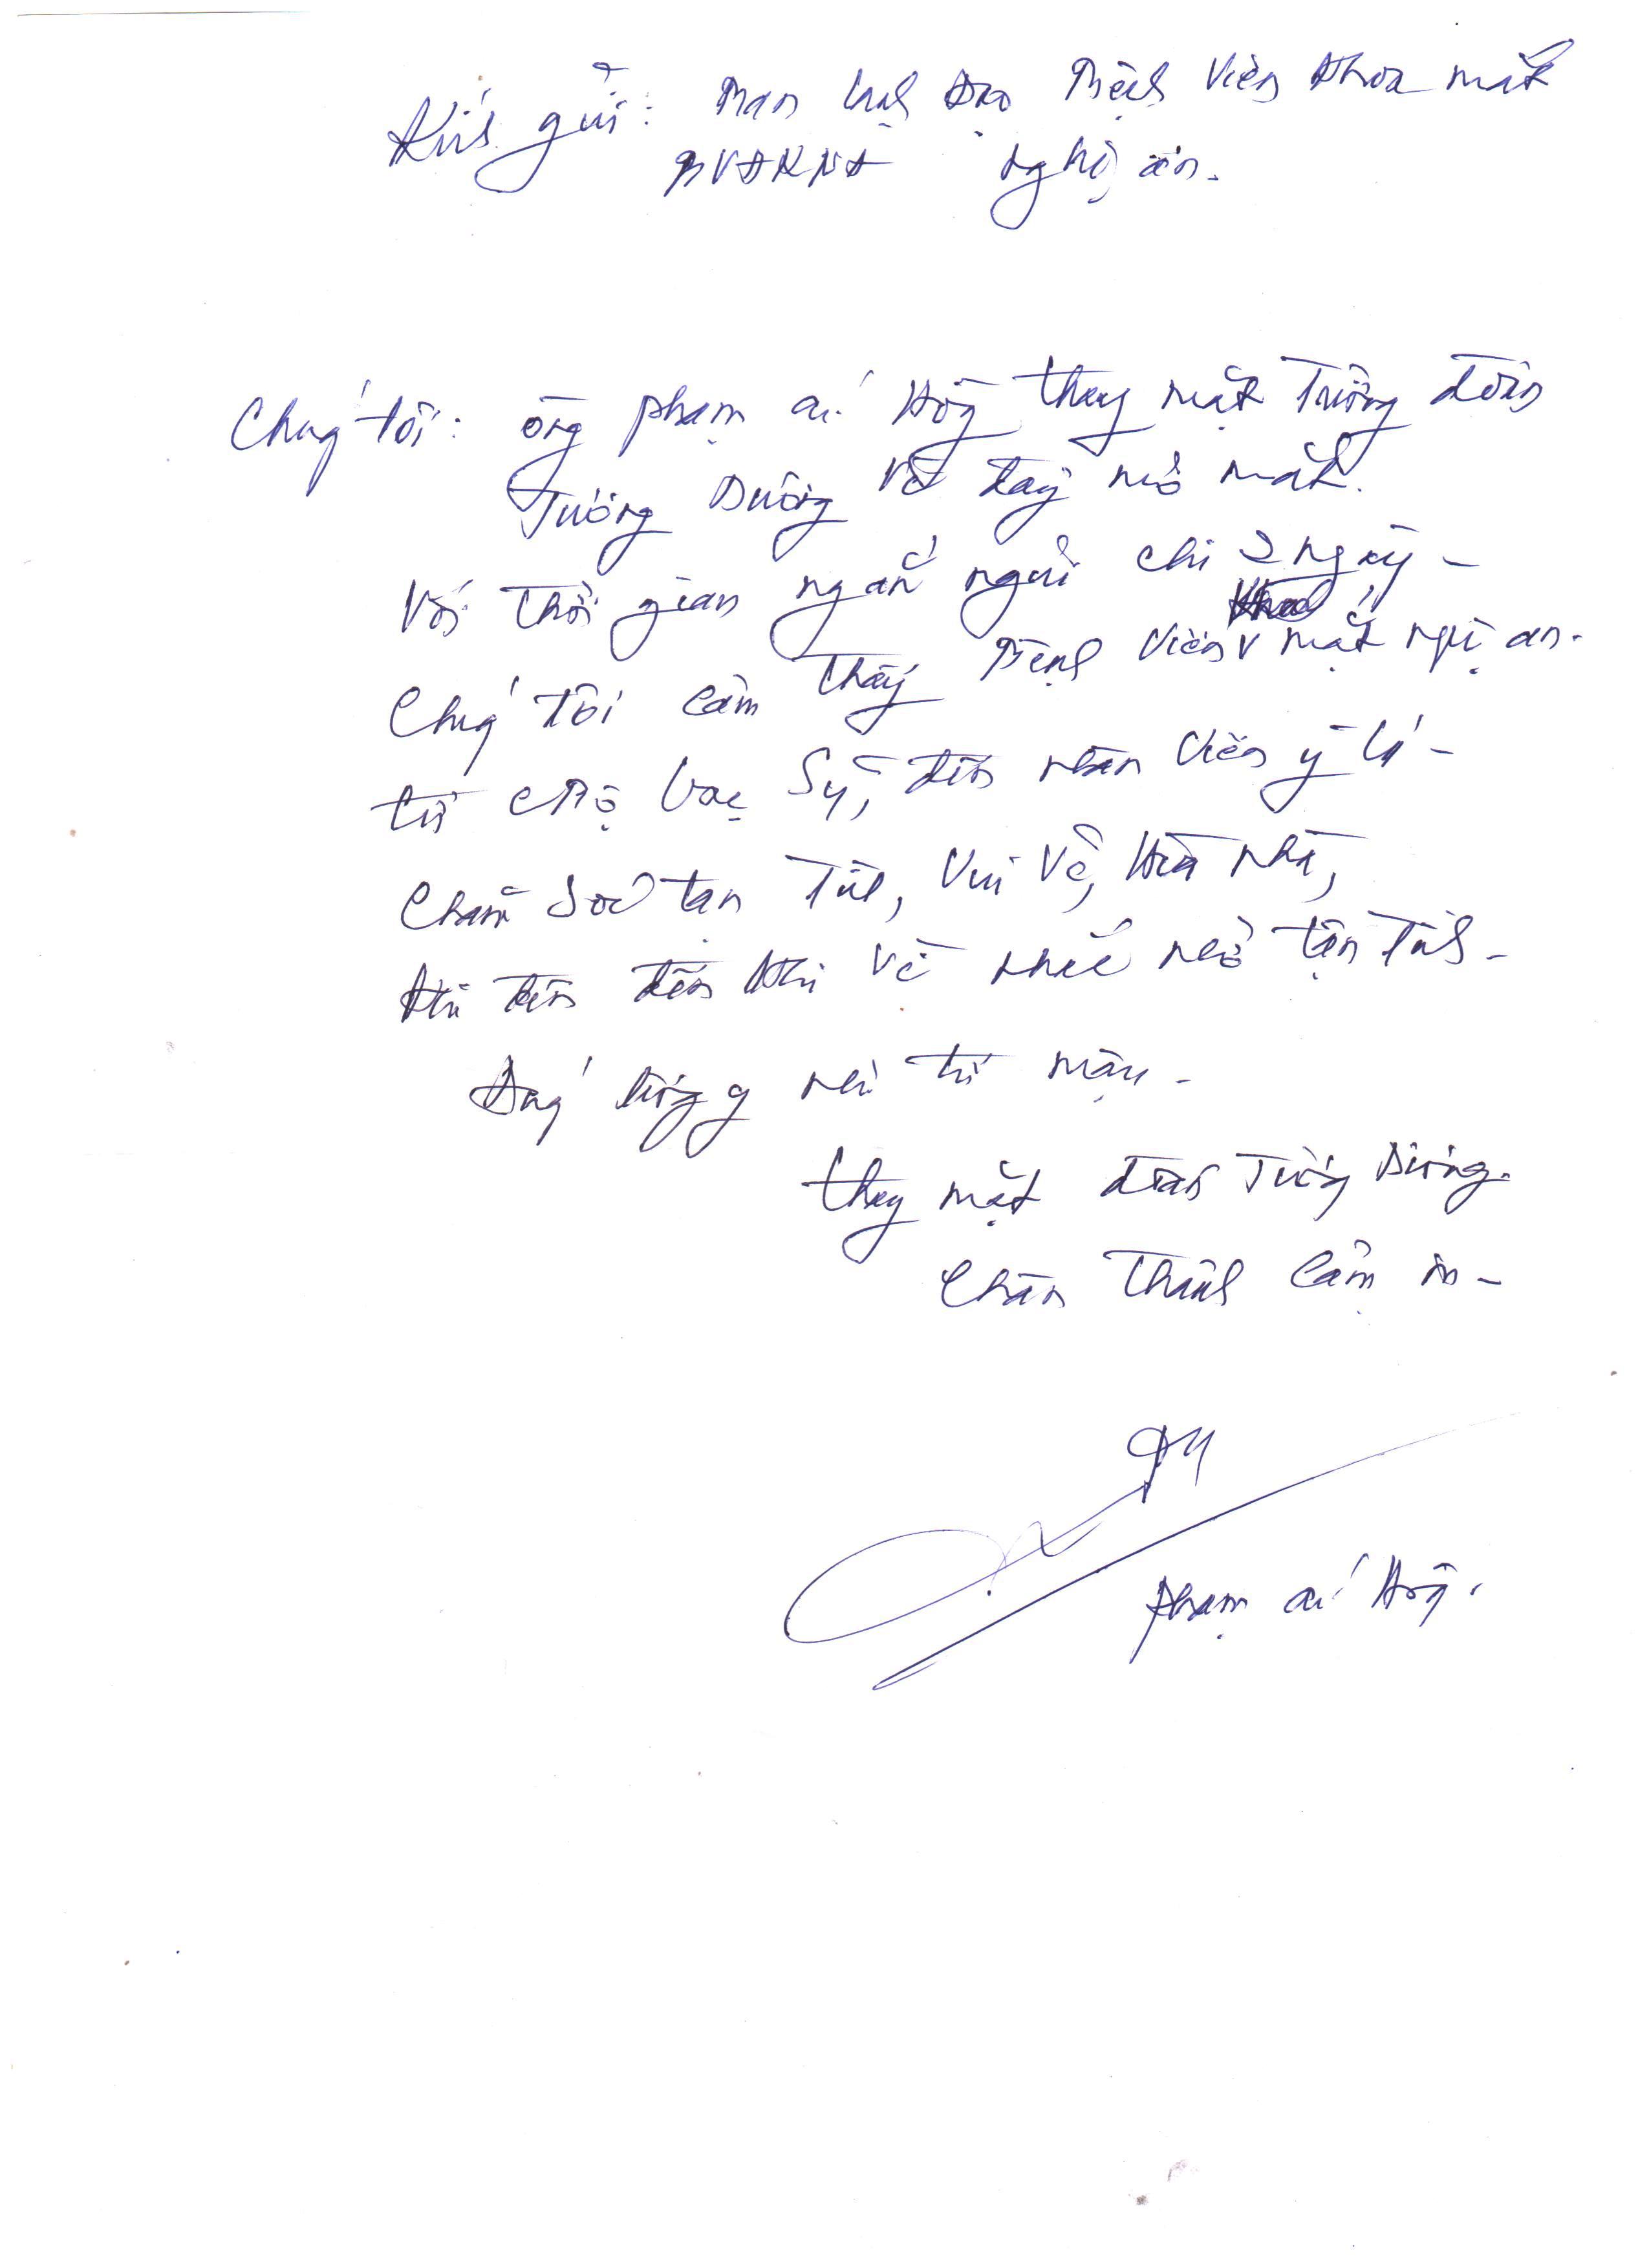 Kính gửi: Ban lãnh đạo Bệnh viện khoa mắt
BVĐKNA nghệ an.
Chúng tôi: ông phạm ái Hồng thay mặt Trưởng đoàn
Tương Dương về đây mổ mắt.
Với thời gian ngắn ngủi chỉ 2 ngày -
Chúng tôi cảm thấy Bệnh viện mắt nghệ an.
từ bác Sỹ, đến nhân viên y tá -
Chăm Sóc tận Tình, Vui Vẻ, Hòa nhã,
Khi đến đến khi về nhắc nhở tận Tình -
Đúng lương y như từ mậu -
thay mặt đoàn Tương Dương.
Chân Thành Cảm ơn -
phạm ái Hồng.